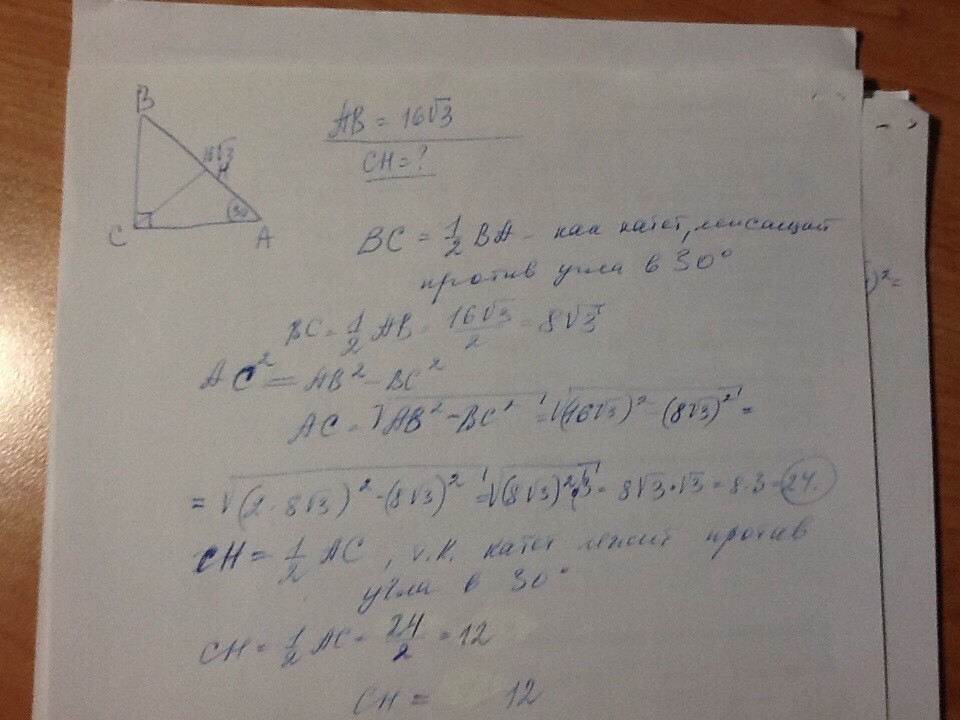 B
16√3
H
30
C
A
AB = 16√3
CH = ?
BC = 1/2 BA - как катет, лежащий
против угла в 30°
BC = 1/2 AB = 16√3/2 = 8√3
AC² = AB² - BC²
AC = √(AB² - BC²) = √((16√3)² - (8√3)²) =
= √((2·8√3)² - (8√3)²) = √((8√3)²·3) = 8√3·√3 = 8·3 = 24.
CH = 1/2 AC, т.к. катет лежит против
угла в 30°
CH = 1/2 AC = 24/2 = 12
CH = 12
)² =